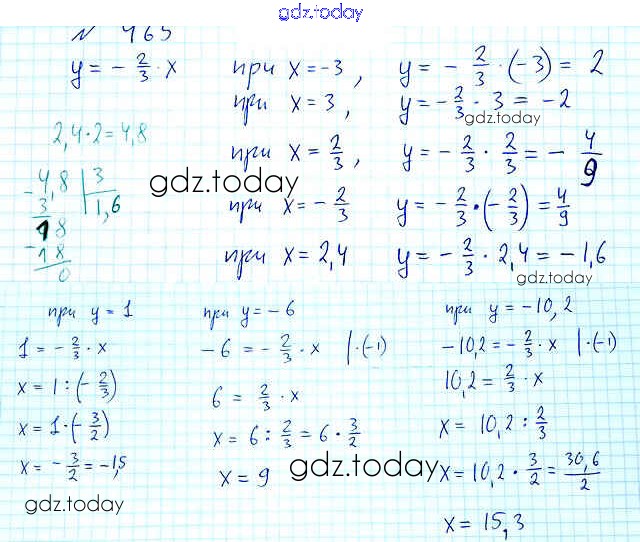 gdz.today
№ 465
y = - 2/3 · x
при x = -3, y = - 2/3 · (-3) = 2
при x = 3, y = - 2/3 · 3 = -2
gdz.today
2,4·2=4,8
при x = 2/3, y = - 2/3 · 2/3 = - 4/9
4,8 | 3
gdz.today
- 3 1,6
18
- 18
0
при x = - 2/3 y = - 2/3 · (- 2/3) = 4/9
при x = 2,4 y = - 2/3 · 2,4 = - 1,6
gdz.today
при y = 1
1 = - 2/3 · x
x = 1 : (- 2/3)
x = 1·(- 3/2)
x = - 3/2 = -1,5
gdz.today
при y = - 6
- 6 = - 2/3 · x |·(-1)
6 = 2/3 · x
x = 6 : 2/3 = 6 · 3/2
x = 9
gdz.today
при y = -10,2
-10,2 = - 2/3 · x |·(-1)
10,2 = 2/3 · x
x = 10,2 : 2/3
x = 10,2 · 3/2 = 30,6/2
x = 15,3